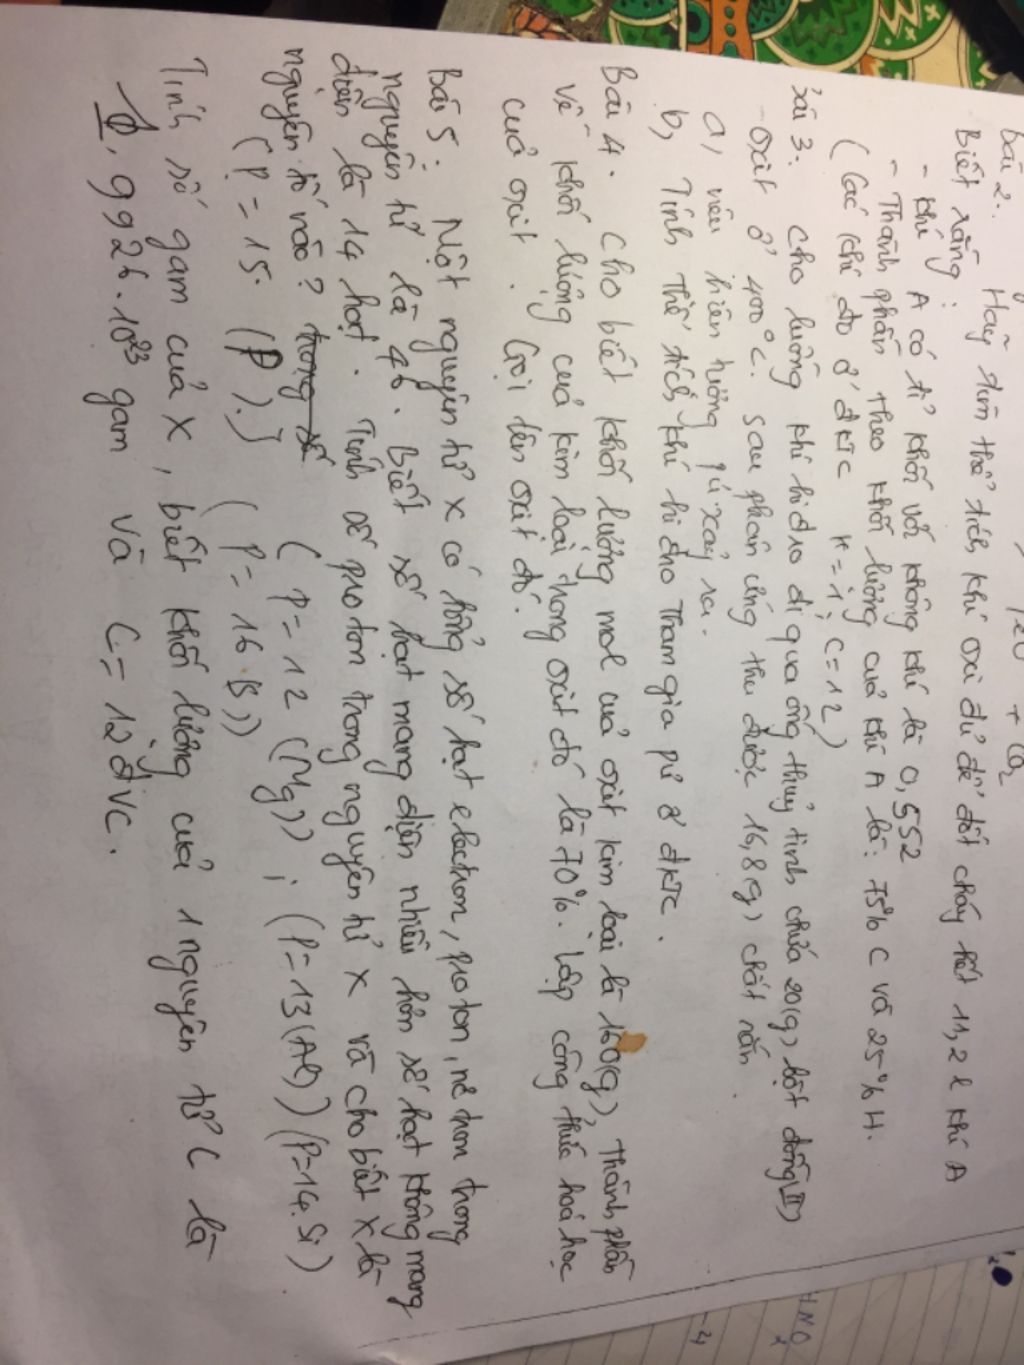 Fe0 + O2
Bài 2: Hãy tìm thể tích khí oxi đủ để đốt cháy hết 11,2 l khí A
Biết rằng:
- khí A có tỉ khối với không khí là 0,552
- Thành phần theo khối lượng của khí A là: 75% C và 25% H.
(Các khí đo ở đktc H=1; C=12)
bài 3. Cho luồng khí hidro đi qua ống thuỷ tinh chứa 20(g) bột đồng(II)
oxit ở 400°C. sau phản ứng thu được 16,8(g) chất rắn.
a, nêu hiện tượng pứ xảy ra.
b, Tính thể tích khí hidro tham gia pứ ở đktc.
Bài 4. Cho biết khối lượng mol của oxit kim loại là 160(g), thành phần
về khối lượng của kim loại trong oxit đó là 70%. Lập công thức hoá học
của oxit. Gọi tên oxit đó.
Bài 5: Một nguyên tử X có tổng số hạt electron, proton, nơtron trong
nguyên tử là 46. Biết số hạt mang điện nhiều hơn số hạt không mang
điện là 14 hạt. Tính số proton trong nguyên tử X và cho biết X là
nguyên tố nào? trong số (P=12 (Mg)) ; (P=13(Al)) (P=14.Si)
(P=15. (P).} (P=16.S))
Tính số gam của X, biết khối lượng của 1 nguyên tử C là
1,9926.10²³ gam và C=12đvC.